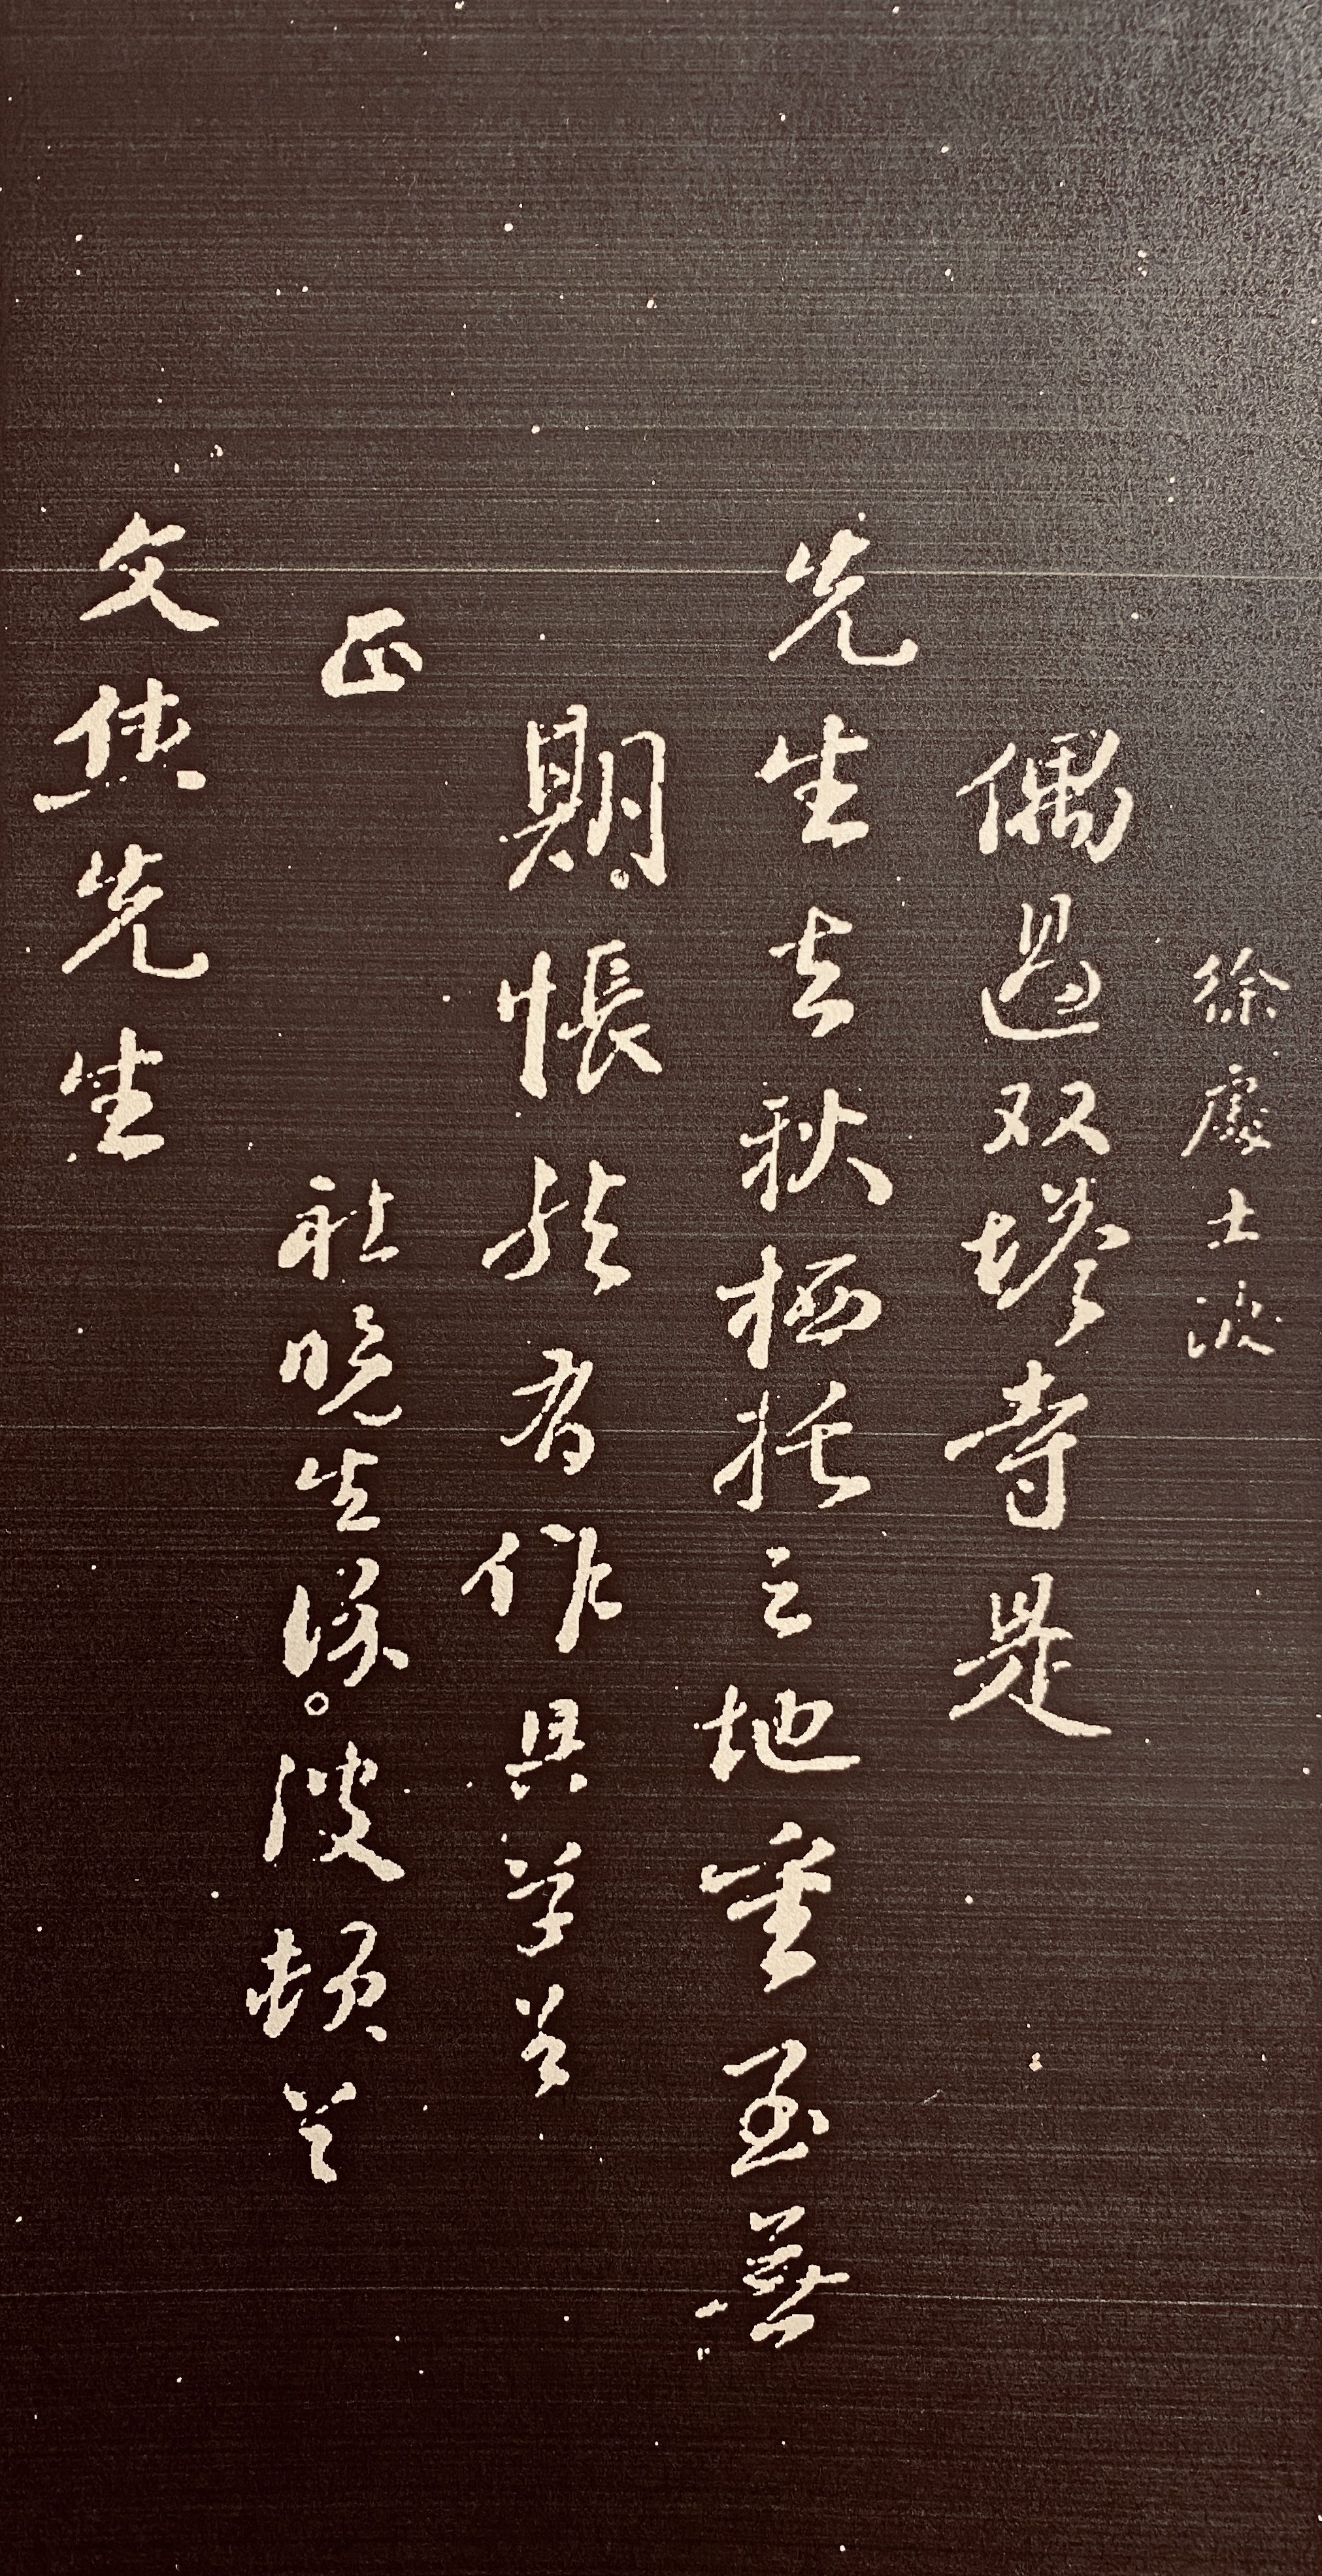 徐處士波
偶過双塔寺是
先生去秋栖托之地重至無
期悵然有作具草呈
正
社晚生徐波頓首
文侠先生